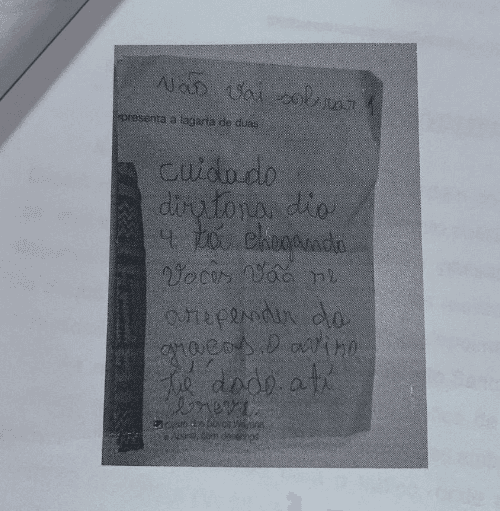 Não vai sobrar 1
epresenta a lagarta de duas
cuidado
diretora dia
4 tá chegando
Vocês vão se
arrepender da
graças. O aviso
já é dado até
breve.